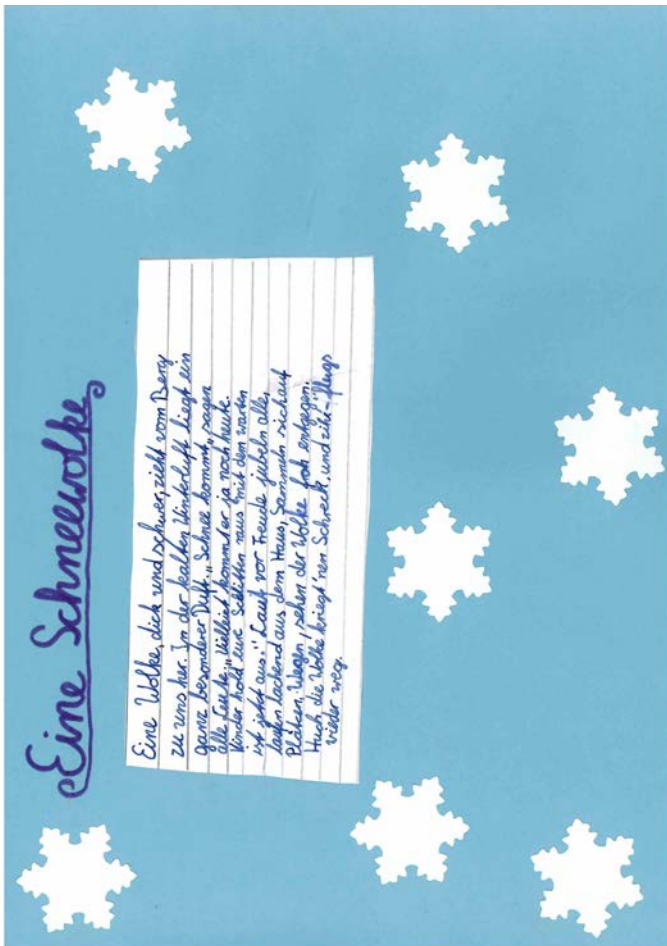 Eine Schneewolke
Eine Wolke, dick und schwer, zieht vom Berg
zu uns her. In der kalten Winterluft liegt ein
ganz besonderer Duft. „Schnee kommt," sagen
alle Leute. „Vielleicht kommt er ja noch heute.
Kinder hold eure Schlitten raus mit dem warten
ist jetzt aus." Laut vor Freude jubeln alle,
laufen lachend aus dem Haus, Sammeln sich auf
Plätzen, Wegen, sehen der Wolke froh entgegen.
Huch die Wolke kriegt 'nen Schreck, und ist - flugs
wieder weg.